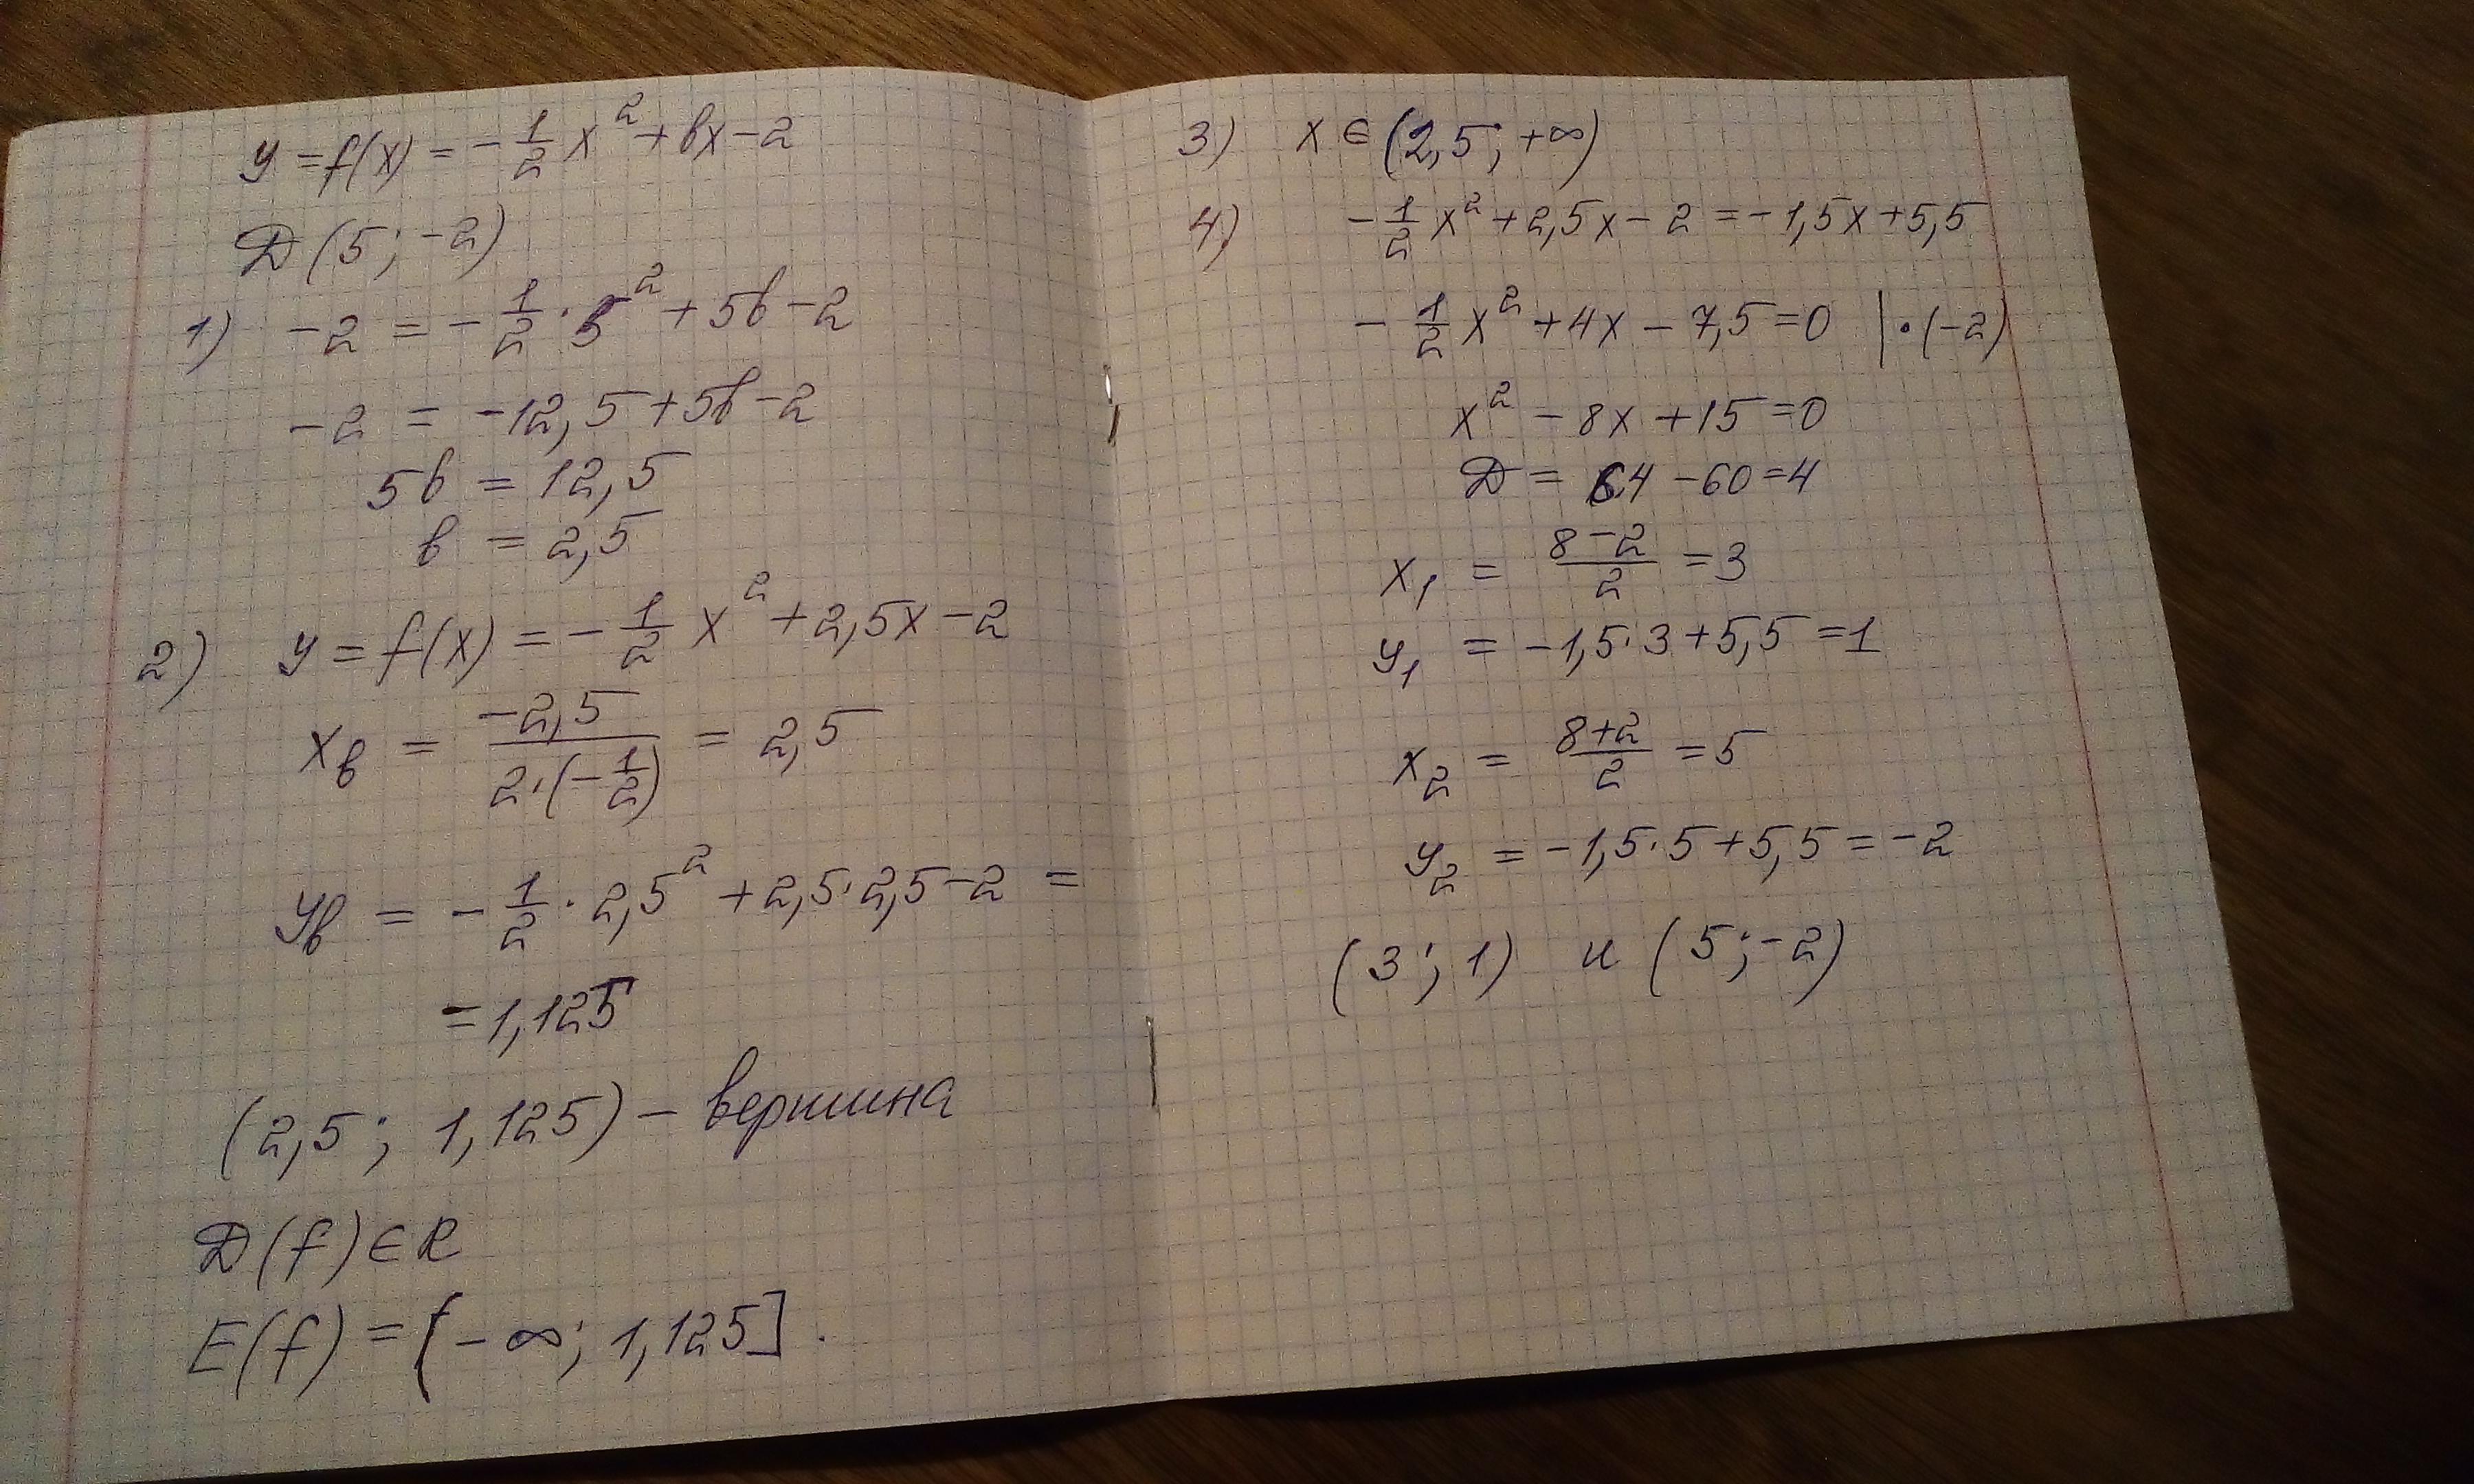 y = f(x) = -1/2 x² + bx - 2
D (5; -2)
1) -2 = -1/2 · 5² + 5b - 2
-2 = -12,5 + 5b - 2
5b = 12,5
b = 2,5
2) y = f(x) = -1/2 x² + 2,5x - 2
xв = -2,5 / (2·(-1/2)) = 2,5
yв = -1/2 · 2,5² + 2,5 · 2,5 - 2 =
= 1,125
(2,5; 1,125) - вершина
D(f) ∈ R
E(f) = (-∞; 1,125].
3) x ∈ (2,5; +∞)
4) -1/2 x² + 2,5x - 2 = -1,5x + 5,5
-1/2 x² + 4x - 7,5 = 0 | · (-2)
x² - 8x + 15 = 0
D = 64 - 60 = 4
x₁ = (8 - 2)/2 = 3
y₁ = -1,5 · 3 + 5,5 = 1
x₂ = (8 + 2)/2 = 5
y₂ = -1,5 · 5 + 5,5 = -2
(3; 1) и (5; -2)